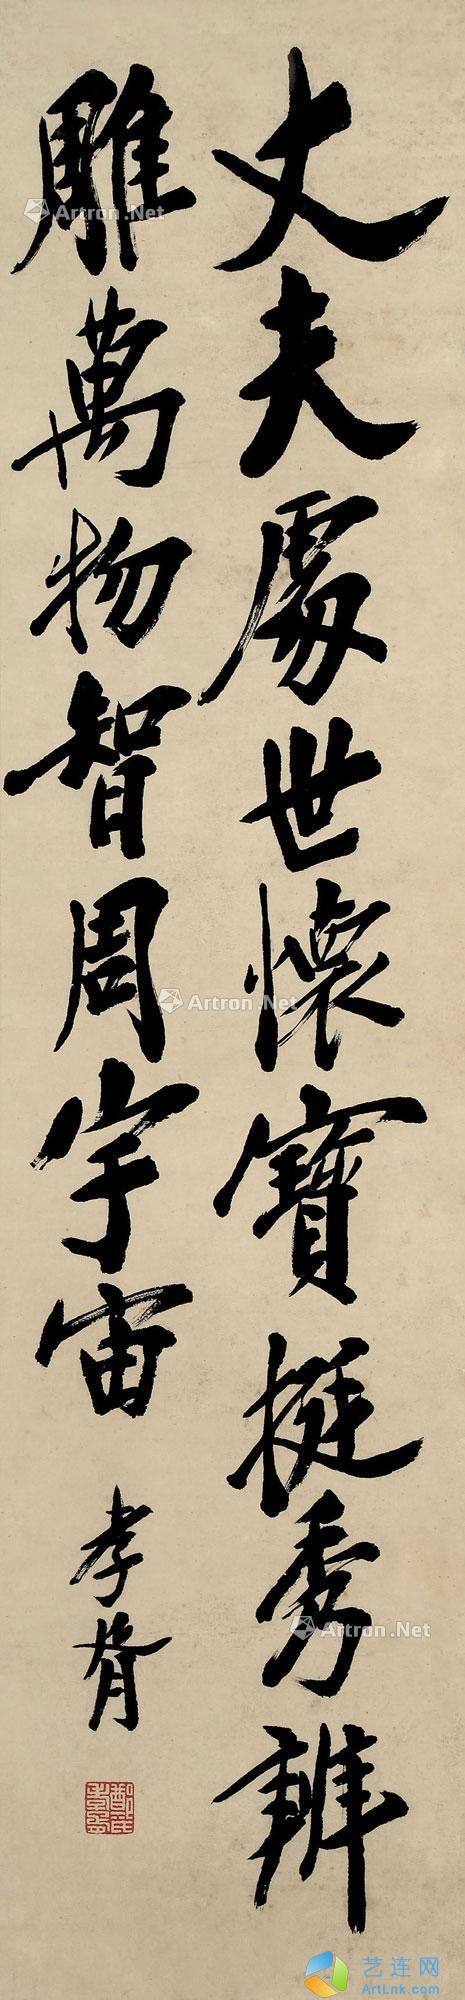 丈夫處世懷寶挺秀辨
雕萬物智周宇宙
孝胥
Artron.Net
Artron.Net
Artron.Net
Artron.Net
艺连网
ArtLnk.Com